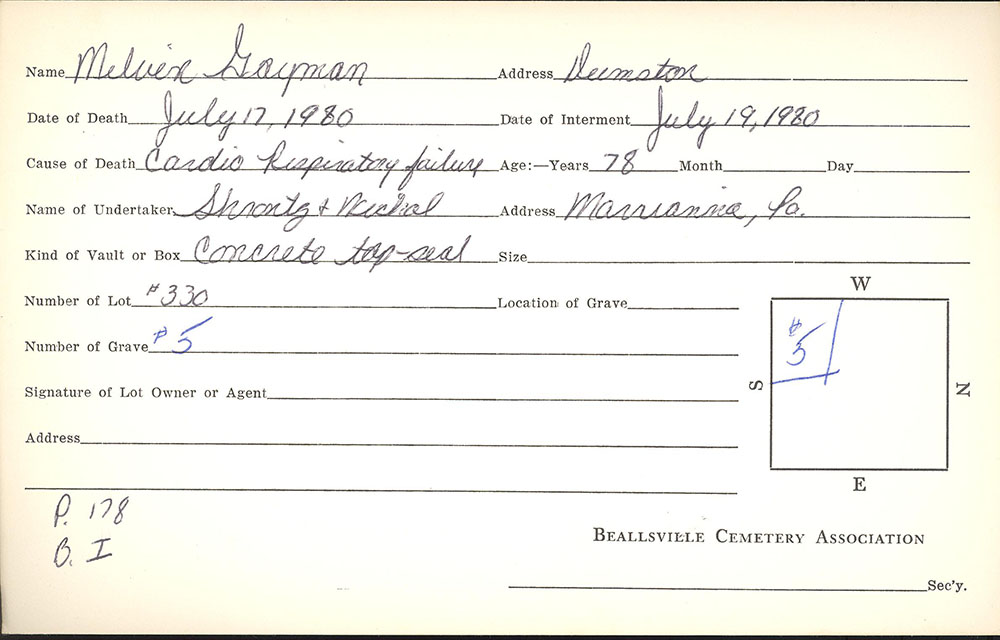 Name Melvin Gayman Address Deemston
Date of Death July 17, 1980 Date of Interment July 19, 1980
Cause of Death Cardio Respiratory failure Age:—Years 78 Month Day
Name of Undertaker Shrontz & Nichol Address Marrianna, Pa.
Kind of Vault or Box Concrete top-seal Size
Number of Lot #330 Location of Grave
Number of Grave #5
W
S
# 5
N
E
Signature of Lot Owner or Agent
Address
P. 178
B. I
BEALLSVILLE CEMETERY ASSOCIATION
Sec'y.